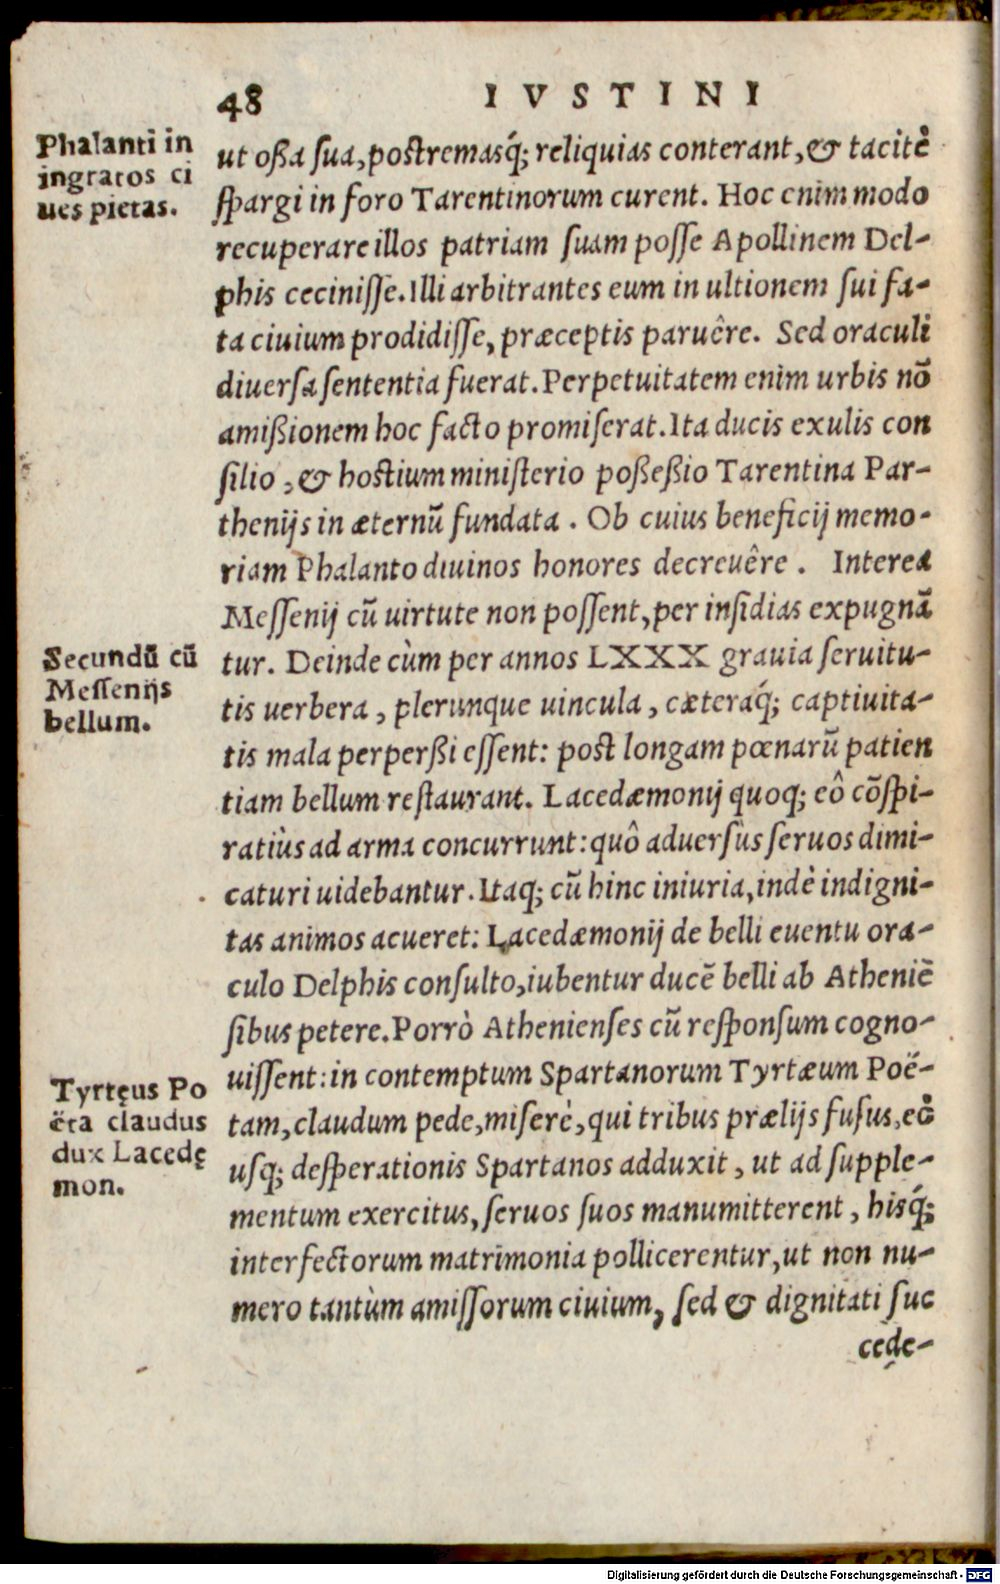 48 IVSTINI
Phalanti in
ingratos ci
ues pietas.
ut oßa sua, postremasq́; reliquias conterant, & tacitè
spargi in foro Tarentinorum curent. Hoc enim modo
recuperare illos patriam suam posse Apollinem Del-
phis cecinisse. Illi arbitrantes eum in ultionem sui fa-
ta ciuium prodidisse, præceptis paruêre. Sed oraculi
diuersa sententia fuerat. Perpetuitatem enim urbis nõ
amißionem hoc facto promiserat. Ita ducis exulis con
silio, & hostium ministerio poßeßio Tarentina Par-
thenijs in æternũ fundata. Ob cuius beneficij memo-
riam Phalanto diuinos honores decreuêre. Interea
Messenij cũ uirtute non possent, per insidias expugnã
Secundũ cũ
Messenijs
bellum.
tur. Deinde cùm per annos LXXX grauia seruitu-
tis uerbera, plerunque uincula, cæteraq́; captiuita-
tis mala perperßi essent: post longam pœnarũ patien
tiam bellum restaurant. Lacedæmonij quoq; eô cõspi-
ratiùs ad arma concurrunt: quô aduersùs seruos dimi-
caturi uidebantur. Itaq; cũ hinc iniuria, indè indigni-
tas animos acueret: Lacedæmonij de belli euentu ora-
culo Delphis consulto, iubentur ducẽ belli ab Atheniẽ
sibus petere. Porrò Athenienses cũ responsum cogno-
Tyrtęus Po
ëta claudus
dux Lacedę
mon.
uissent: in contemptum Spartanorum Tyrtæum Poë-
tam, claudum pede, miserè, qui tribus prælijs fusus, eò
usq; desperationis Spartanos adduxit, ut ad supple-
mentum exercitus, seruos suos manumitterent, hisq́;
interfectorum matrimonia pollicerentur, ut non nu-
mero tantùm amissorum ciuium, sed & dignitati suc
cede-
Digitalisierung gefördert durch die Deutsche Forschungsgemeinschaft - DFG